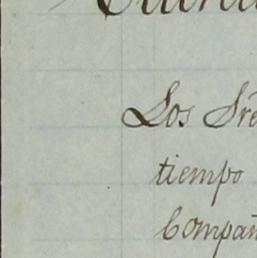 Los Sre
tiempo
Compañ